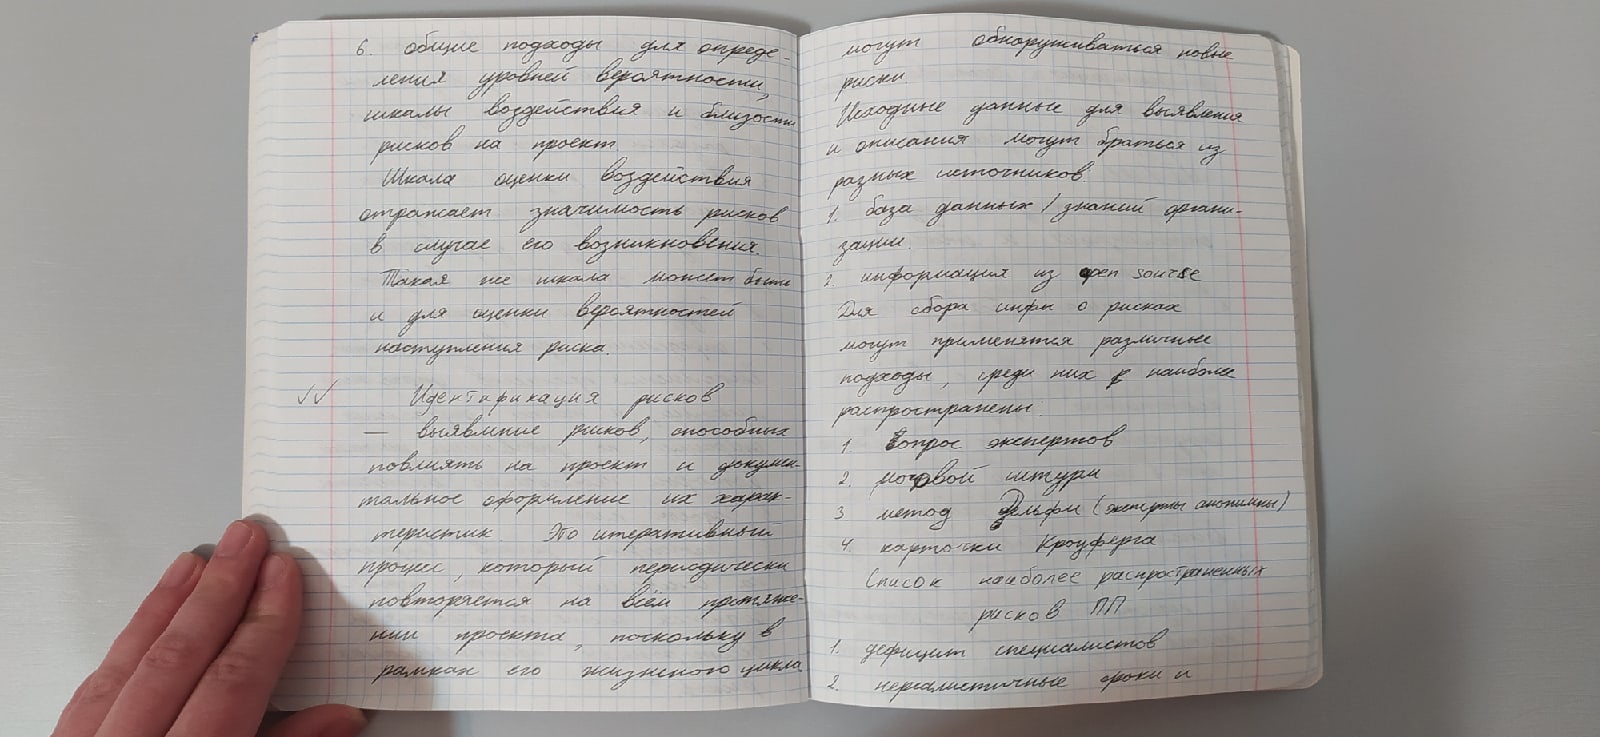 6. общие подходы для опреде-
ления уровней вероятности,
шкалы воздействия и близости
рисков на проект.
Шкала оценки воздействия
отражает значимость рисков
в случае его возникновения.
Такая же шкала может быть
и для оценки вероятностей
наступления риска.
✓✓ Идентификация рисков
— выявление рисков, способных
повлиять на проект и докумен-
тальное оформление их харак-
теристик. Это итеративный
процес, который периодически
повторяется на всём протяже-
нии проекта, поскольку в
рамках его жизненного цикла
могут обнаруживаться новые
риски
Исходные данные для выявления
и описания могут браться из
разных источников.
1. база данных / знаний органи-
зации.
2 информация из open sourse
Для сбора инфы о рисках
могут применятся различные
подходы, среди них наиболее
распространены:
1. опрос экспертов
2. мозговой штурм
3 метод Дельфи (эксперты анонимны)
4. карточки Кроуферга
Список наиболее распространенных
рисков ПП
1. дефицит специалистов
2. нереалистичные сроки и